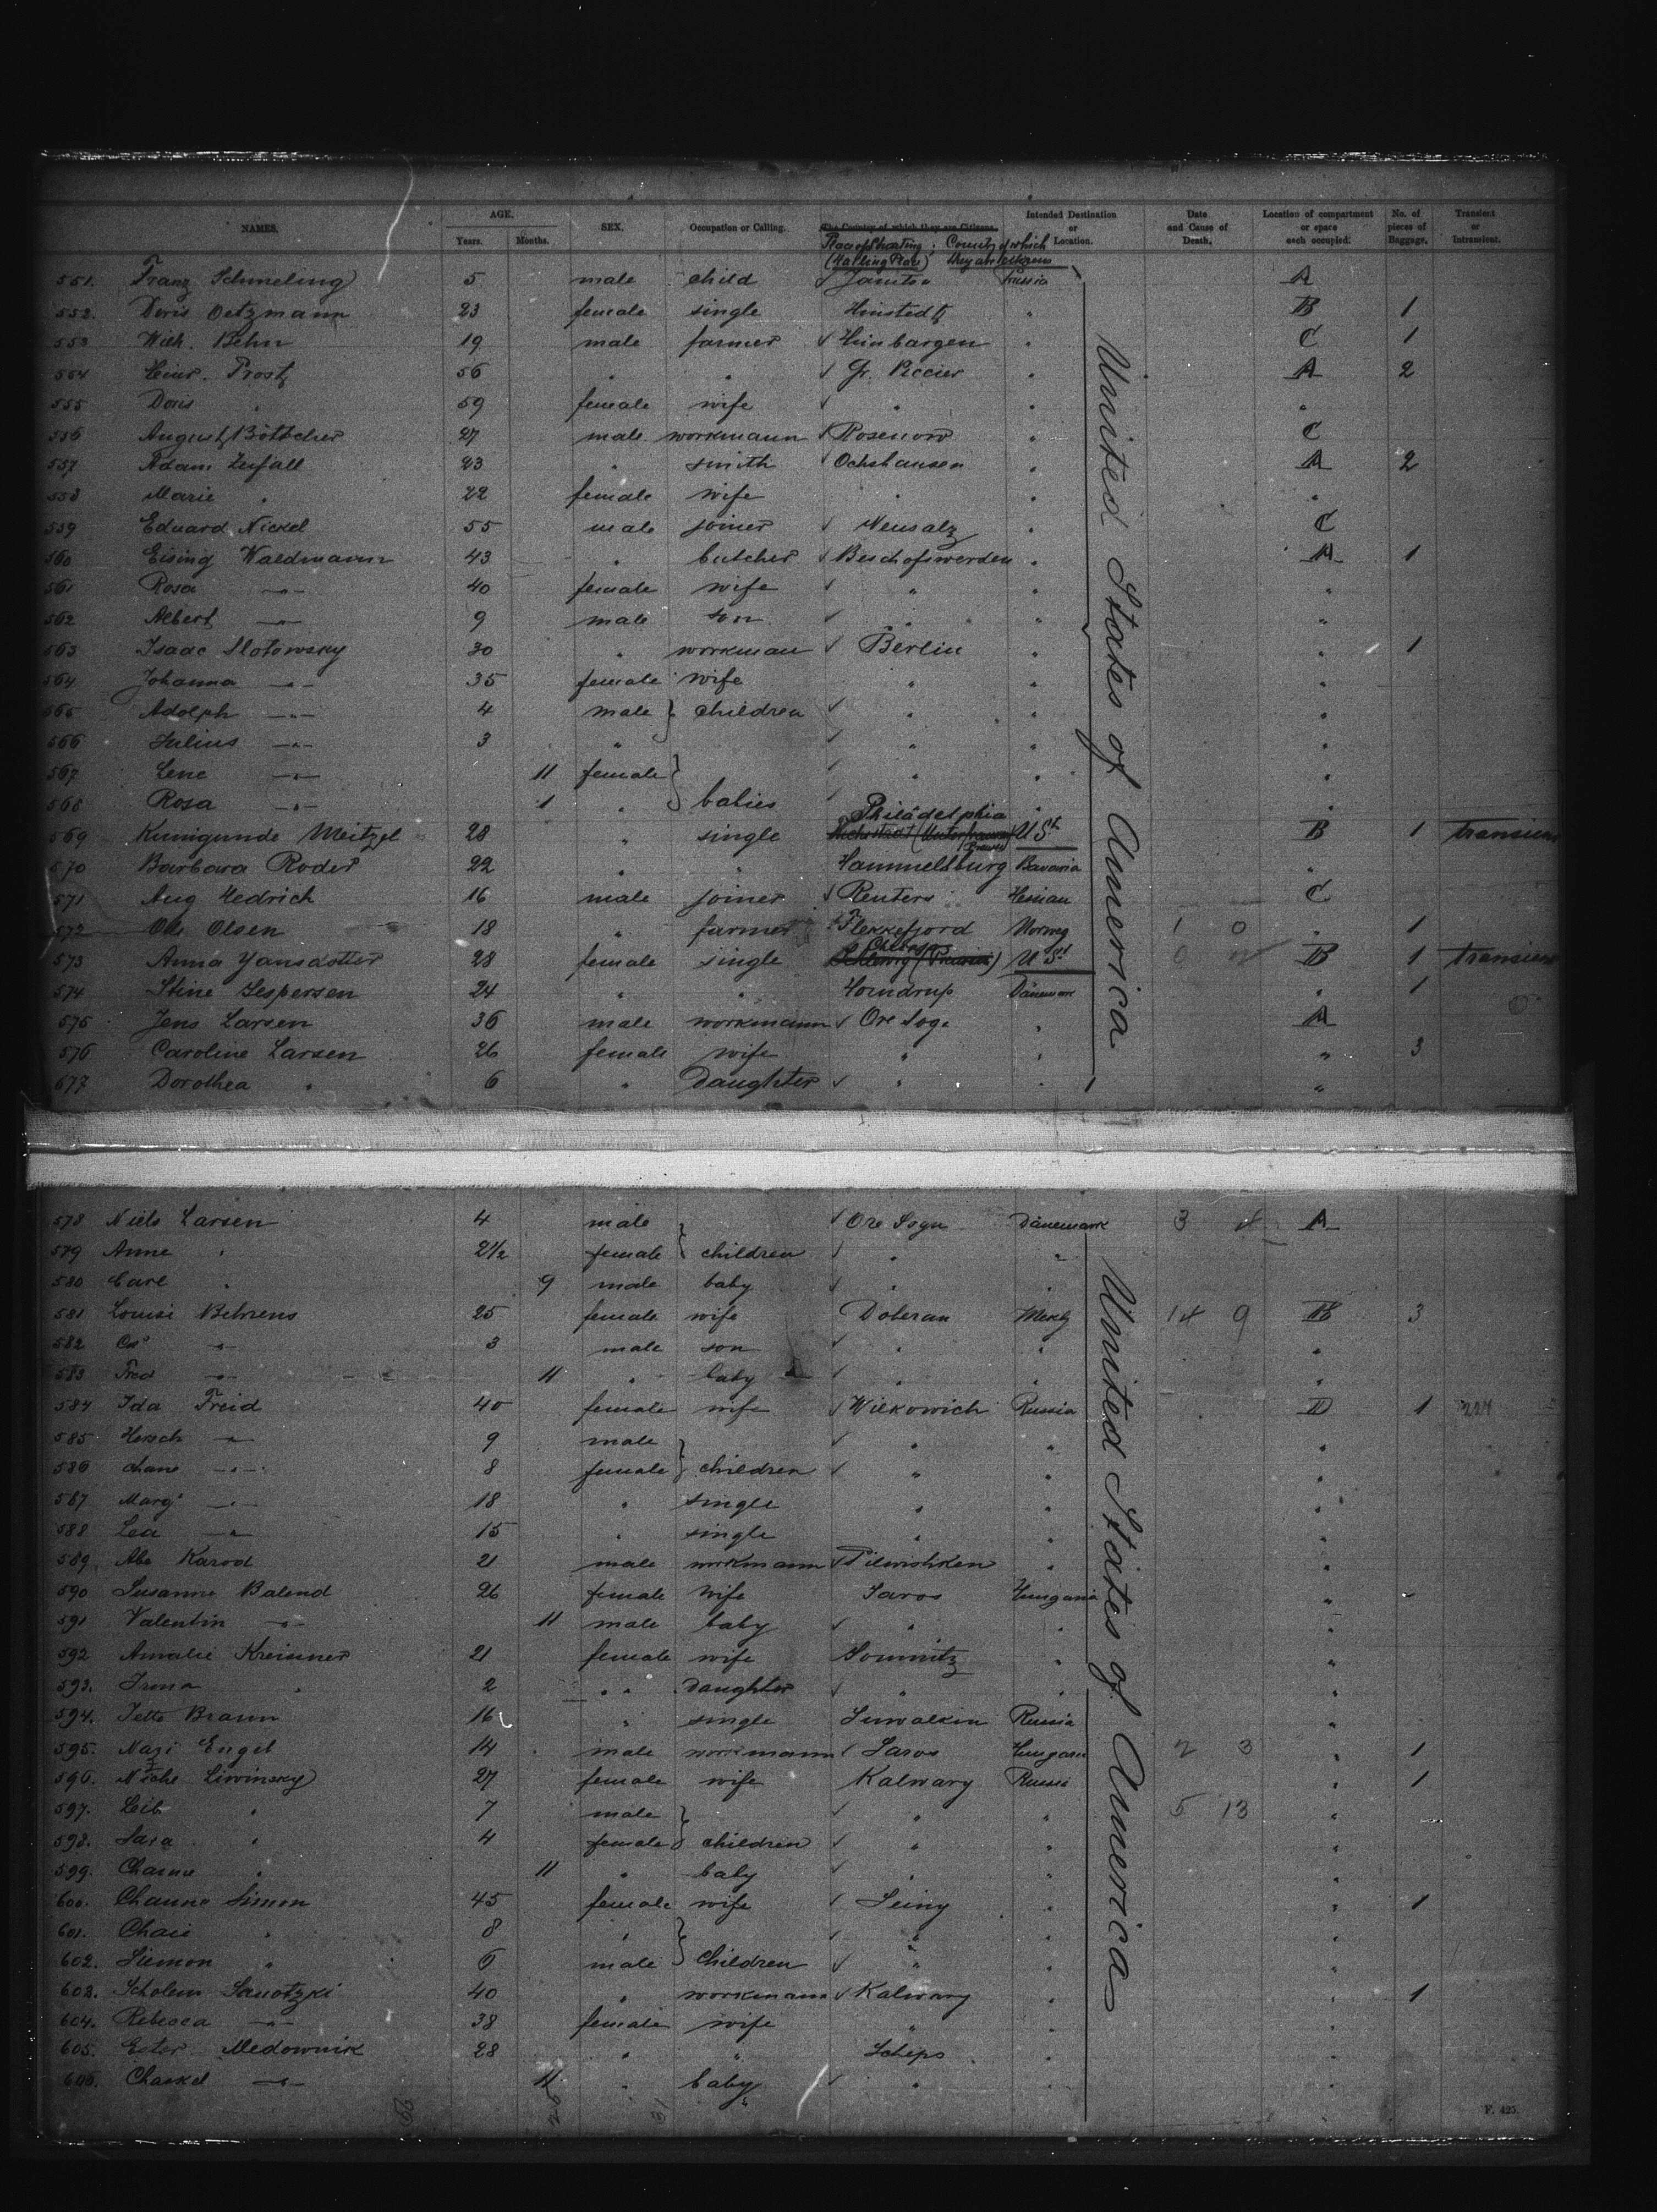 NAMES. AGE. Years. Months. SEX. Occupation or Calling. The Country of which they are Citizens. Intended Destination or Location. Date and Cause of Death. Location of compartment or space each occupied. No. of pieces of Baggage. Transient or Intransient.
Place of Starting; Country of which
(Starting Place) they are citizens
551. Franz Schmeling 5 male child Prussia A
552. Doris Oetzmann 23 female single Hinstedt " B 1
553 Wilh. Behn 19 male farmer Heinbargen " C 1
554 Heinr. Prost 56 " " Gr. " A 2
555 Doris " 59 female wife " " "
556 August Böttcher 27 male workmann Rosenow " C
557 Adam Zufall 23 " smith Ochshausen " A 2
558 Marie " 22 female wife " " "
559 Eduard Nickel 55 male joiner Neusalz " C
560 Eising Waldmann 43 " butcher Bischofswerden " A 1
561 Rosa -"- 40 female wife " " "
562 Albert -"- 9 male son " " "
563 Isaac Slotowsky 30 " workman Berlin " " 1
564 Johanna -"- 35 female wife " " "
565 Adolph -"- 4 male children " " "
566 Julius -"- 3 " " " "
567 Lene -"- 11 female " " "
568 Rosa -"- 1 " babies " " "
569 Kunigunde Meitzel 28 " single Philadelphia U St B 1 transient
570 Barbara Roder 22 " " Hammelburg Bavaria "
571 Aug Hedrich 16 male joiner Reuters Hessian C
572 Ole Olsen 18 " farmer Flekkefjord Norweg 1 0 " 1
573 Anna Yansdotter 28 female single Chicago U St B 1 transient
574 Stine Jespersen 24 " " Horndrup Dänemark " 1
575 Jens Larsen 36 male workmann Ore Sog. " A
576 Caroline Larsen 26 female wife " " " 3
577 Dorothea " 6 " Daughter " " "
United States of America
578 Niels Larsen 4 male Ore Sogn Dänemark 3 A
579 Anne " 2 1/2 female children " "
580 Carl " 9 male baby " "
581 Louise Behrens 25 female wife Doberan Meklg 14 9 B 3
582 " 3 male son " " "
583 Fred -"- 11 " baby " " "
584 Ida Freid 40 female wife Wilkowich Russia D 1 224
585 Hersch -"- 9 male " " "
586 Chane -"- 8 female children " " "
587 Marg. -"- 18 " single " " "
588 Lea -"- 15 " single " " "
589. Abe Karod 21 male workmann Pilwishken " "
590 Susanne Balend 26 female wife Saros Hungaria "
591 Valentin -"- 11 male baby " " "
592 Amalie Kreisner 21 female wife Somnitz " "
593. Irma " 2 " " Daughter " " "
594. Jette Braun 16 " single Suwalken Russia "
595. Nazi Engel 14 male workmann Saros Hungari 2 3 " 1
596. Liwinsky 27 female wife Kalwary Russi " 1
597. Leib " 7 male " " 5 13 "
598. Sara " 4 female children " " "
599. Chasme " 11 " baby " " "
600. Channe Simon 45 female wife Seiny " " 1
601. Chaie " 8 " " " "
602. Siemon " 6 male Children " " "
603. Scholem Sanotzki 40 " workmann Kalwary " " 1
604. Rebecca -"- 38 female wife " " "
605. Ester Medownik 28 " " Schips " "
606. Chaskel -"- 11 " baby " " "
United States of America
F. 425.